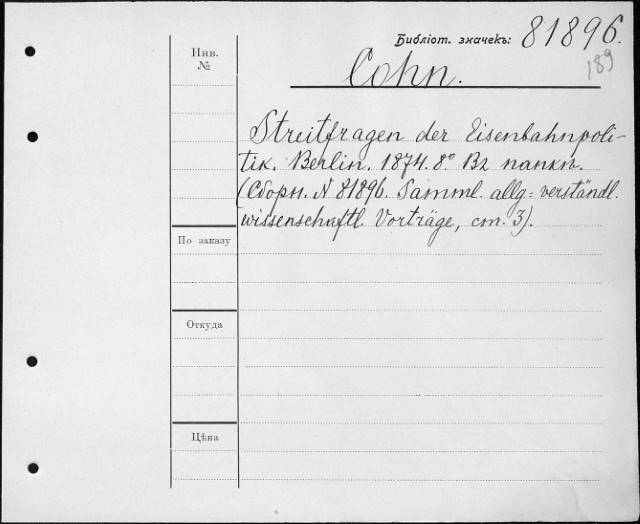 Библіот. значекъ: 81896.
189
Cohn.
Инв.
№
Streitfragen der Eisenbahnpoli-
tik. Berlin. 1874. 8° Въ папкѣ.
(Сборн. № 81896. Samml. allg.=verständl.
wissenschaftl. Vorträge, ст. 3).
По заказу
Откуда
Цѣна